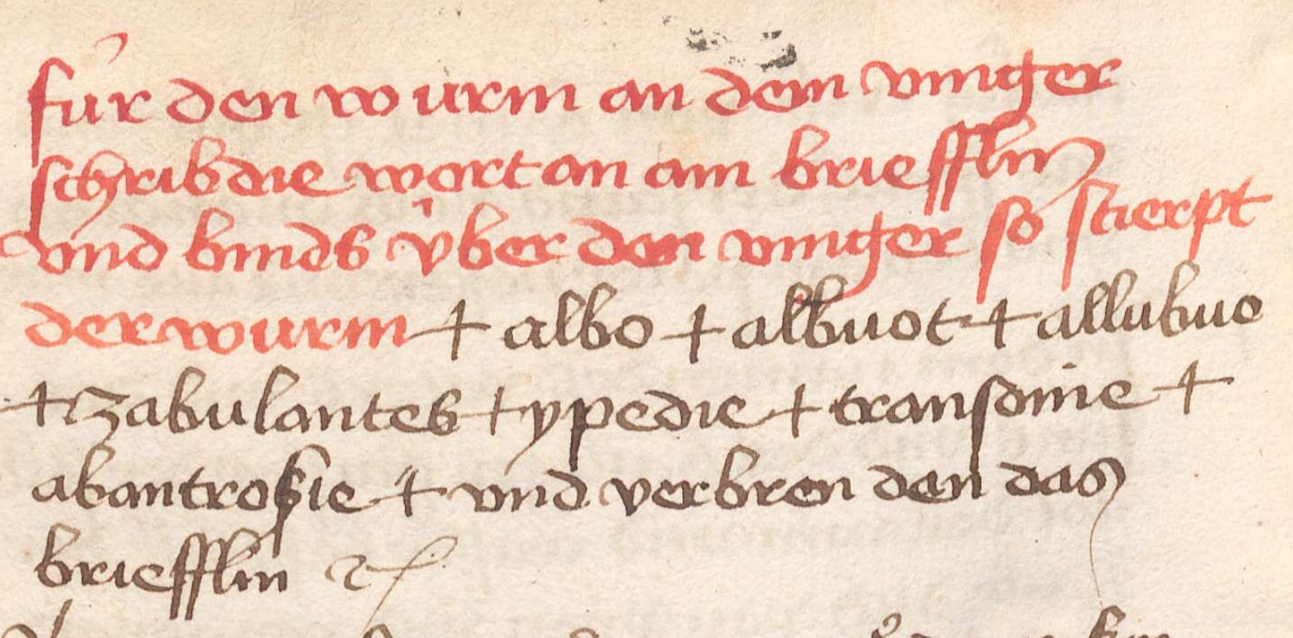 für den wurm an dem vinger
schrib die wort an ain briefflin
vnd binds vber den vinger so stierpt
der wurm + albo + albuot + allubuo
+ zabulantes + ypedie + transdine +
abantrosie + vnd verbren den das
briefflin